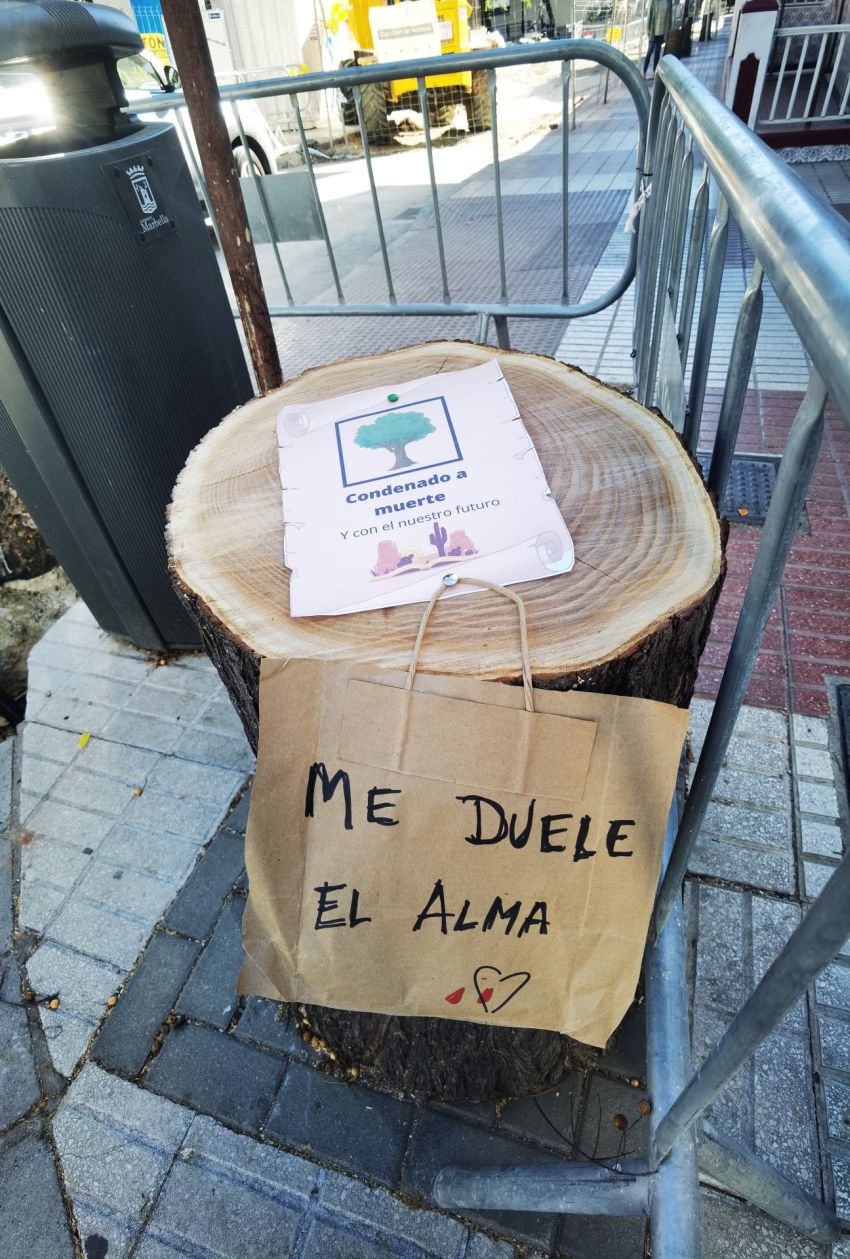 Marbella
Condenado a
muerte
Y con el nuestro futuro
ME DUELE
EL ALMA